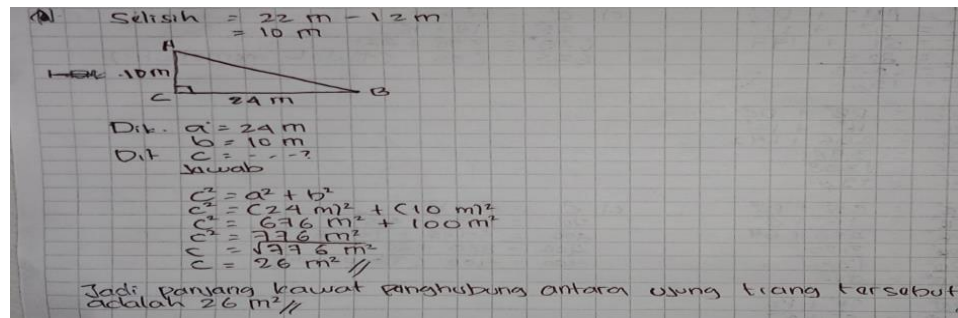 Selisih = 22 m - 12 m
= 10 m
A
10m
C 24 m B
Dik. a = 24 m
b = 10 m
Dit c = - - -?
Jawab
c² = a² + b²
c² = (24 m)² + (10 m)²
c² = 676 m² + 100 m²
c² = 776 m²
c = √776 m²
c = 26 m² //
Jadi panjang kawat penghubung antara ujung tiang tersebut
adalah 26 m² //